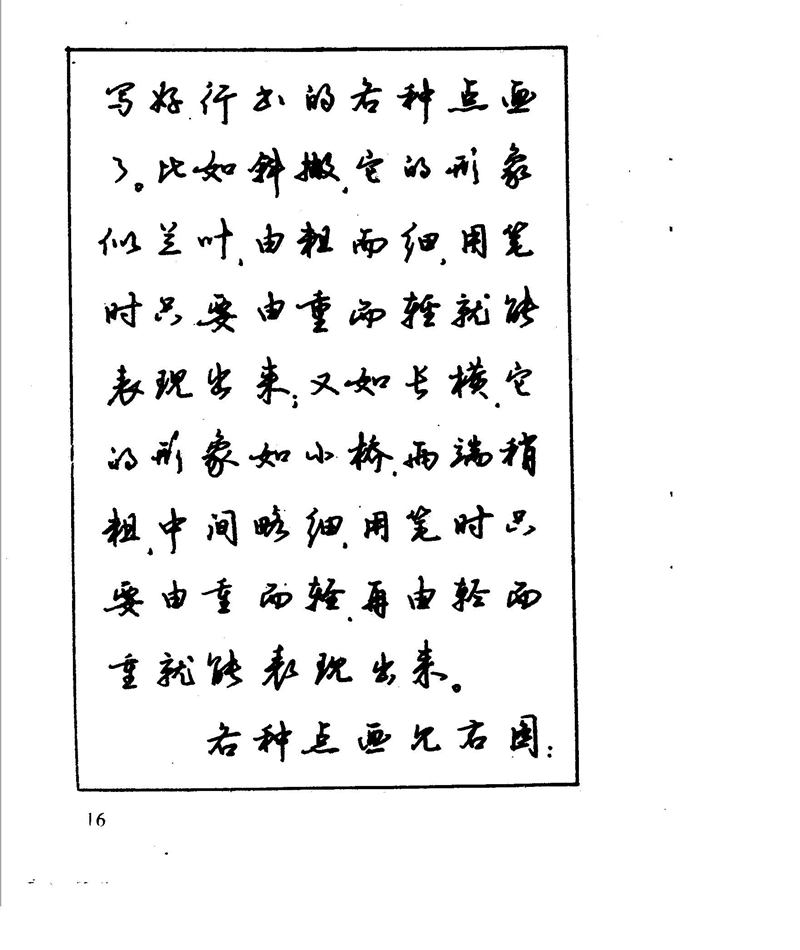 写好行书的各种点画
了。比如斜撇,它的形象
似兰叶,由粗而细,用笔
时只要由重而轻就能
表现出来;又如长横,它
的形象如小桥,两端稍
粗,中间略细,用笔时只
要由重而轻,再由轻而
重就能表现出来。
各种点画见右图:
16